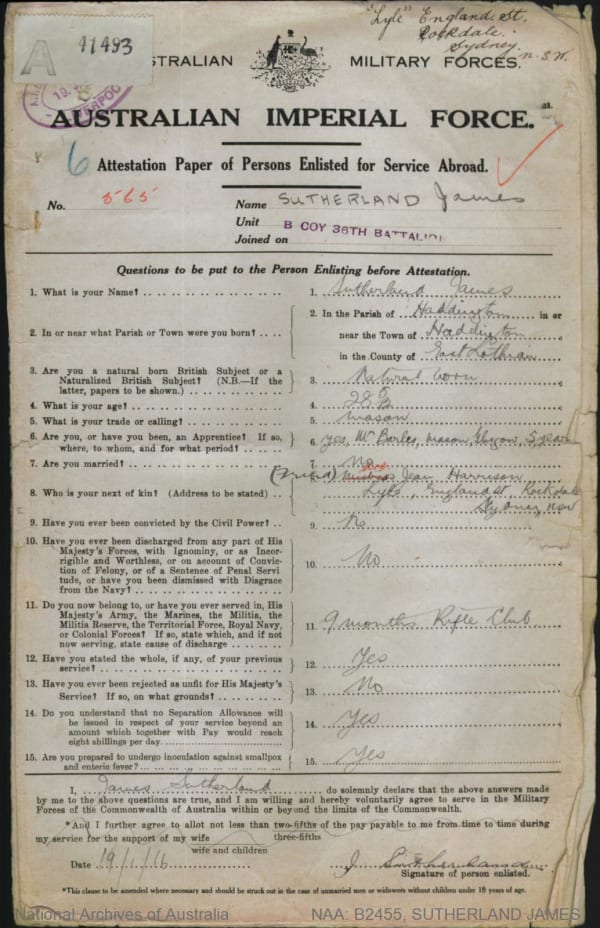 "Lyle" England St.
Rockdale.
Sydney.
N.S.W.
A 41493
AUSTRALIAN MILITARY FORCES.
AUSTRALIAN IMPERIAL FORCE.
6 Attestation Paper of Persons Enlisted for Service Abroad.
No. 565 Name SUTHERLAND James
Unit B COY 36TH BATTALION
Joined on
Questions to be put to the Person Enlisting before Attestation.
1. What is your Name? 1. Sutherland James
2. In or near what Parish or Town were you born? 2. In the Parish of Haddington in or
near the Town of Haddington
in the County of East Lothian
3. Are you a natural born British Subject or a
Naturalized British Subject? (N.B.—If the
latter, papers to be shown.) 3. Natural born
4. What is your age? 4. 28
5. What is your trade or calling? 5. Mason
6. Are you, or have you been, an Apprentice? If so,
where, to whom, and for what period? 6. yes, Mr mason, 5 years
7. Are you married? 7. No
8. Who is your next of kin? (Address to be stated) (Friend) Jean Harrison
Lyle, England St, Rockdale
Sydney NSW
9. Have you ever been convicted by the Civil Power? 9. No
10. Have you ever been discharged from any part of His
Majesty's Forces, with Ignominy, or as Incor-
rigible and Worthless, or on account of Convic-
tion of Felony, or of a Sentence of Penal Servi
tude, or have you been dismissed with Disgrace
from the Navy? 10. No
11. Do you now belong to, or have you ever served in, His
Majesty's Army, the Marines, the Militia, the
Militia Reserve, the Territorial Force, Royal Navy,
or Colonial Forces? If so, state which, and if not
now serving, state cause of discharge 11. 9 months Rifle Club
12. Have you stated the whole, if any, of your previous
service? 12. Yes
13. Have you ever been rejected as unfit for His Majesty's
Service? If so, on what grounds? 13. No
14. Do you understand that no Separation Allowance will
be issued in respect of your service beyond an
amount which together with Pay would reach
eight shillings per day. 14. Yes
15. Are you prepared to undergo inoculation against smallpox
and enteric fever? 15. Yes
I, James Sutherland do solemnly declare that the above answers made
by me to the above questions are true, and I am willing and hereby voluntarily agree to serve in the Military
Forces of the Commonwealth of Australia within or beyond the limits of the Commonwealth.
*And I further agree to allot not less than two-fifths of the pay payable to me from time to time during
three-fifths
my service for the support of my wife
wife and children
Date 19/1/16 J Sutherland
Signature of person enlisted.
*This clause to be amended where necessary and should be struck out in the case of unmarried men or widowers without children under 18 years of age.
National Archives of Australia NAA: B2455, SUTHERLAND JAMES